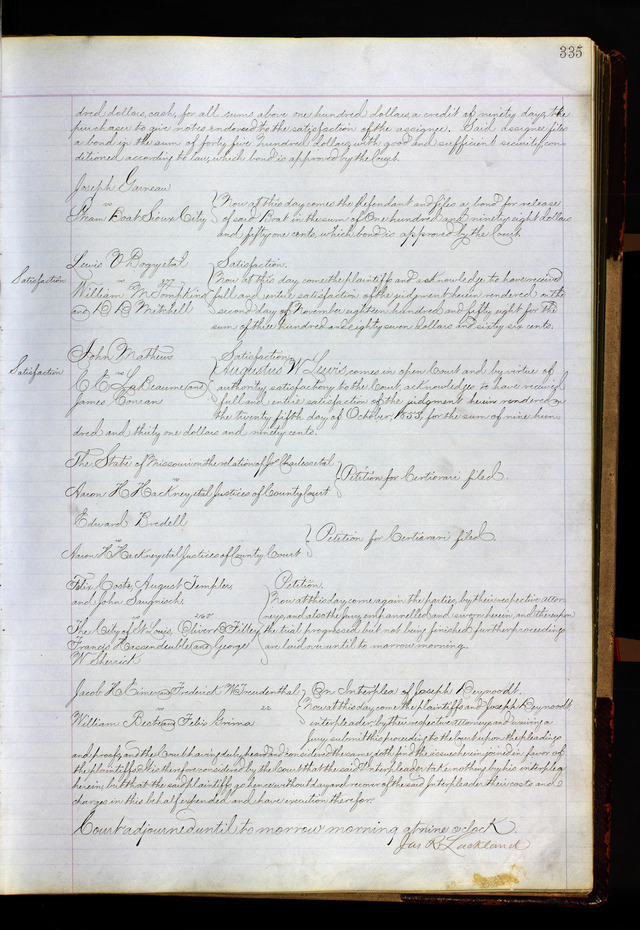 335
dred dollars, cash, for all sums above one hundred dollars, a credit of ninety days, the
purchaser to give notes endorsed to the satisfaction of the assignee. Said assignee files
a bond in the sum of forty five hundred dollars, with good and sufficient securities con-
ditioned according to law, which bond is approved by the Court.
Joseph Garneau
vs
Steam Boat Sioux City
Now at this day comes the defendant and files a bond for release
of said Boat in the sum of One hundred and ninety eight dollars
and fifty one cents, which bond is approved by the Court.
Satisfaction
Lewis V Bogy et al
vs
William M Tompkins
and R R Mitchell
Satisfaction.
Now at this day, come the plaintiffs and acknowledge to have received
full and entire satisfaction of the judgment herein rendered on the
second day of November eighteen hundred and fifty eight for the
sum of three hundred and eighty seven dollars and sixty six cents.
Satisfaction
John Mathews
vs
C E LaBeaume and
James Conran
Satisfaction.
Augustus W Lewis, comes in open Court and by virtue of
authority satisfactory to the Court, acknowledges to have received
full and entire satisfaction of the judgment herein rendered on
the twenty fifth day of October, 1853, for the sum of nine hun-
dred and thirty one dollars and ninety cents.
The State of Missouri on the relation of Charles et al
vs
Aaron H Hackney et al Justices of County Court
Petition for Certiorari filed.
Edward Bredell
vs
Aaron H Hackney et al Justices of County Court
Petition for Certiorari filed.
Felix Coste, August Temples,
and John Saugnisch.
vs
The City of St Louis, Oliver D Filley
Francis Hassendeuble and George
W Sherrick
Petition.
Now at this day come again the parties, by their respective attor-
neys, and also the Jury empannelled and sworn herein, and thereupon
the trial progressed but not being finished further proceedings
are laid over until to morrow morning.
Jacob H Einer and Frederick W Freudenthal
vs
William Beck and Felis Grima
On Interplea of Joseph Deynoodt.
Now at this day come the plaintiffs and Joseph Deynoodt
interpleader, by their respective attorneys and waiving a
Jury submit this proceeding to the Court upon the pleadings
and proofs, and the Court having duly heard and considered the same doth find the issue herein joined in favor of
the plaintiffs. It is therefore considered by the Court that the said Interpleader take nothing by his interplea
herein but that the said plaintiffs go hence without day and recover of the said Interpleader their costs and
charges in this behalf expended and have execution therefor.
Court adjourned until to morrow morning at nine o'clock.
Jas R Lackland